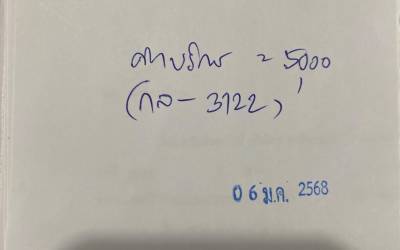 ค่าบริการ = 5,000
(กล - 3122)
06 ม.ค. 2568